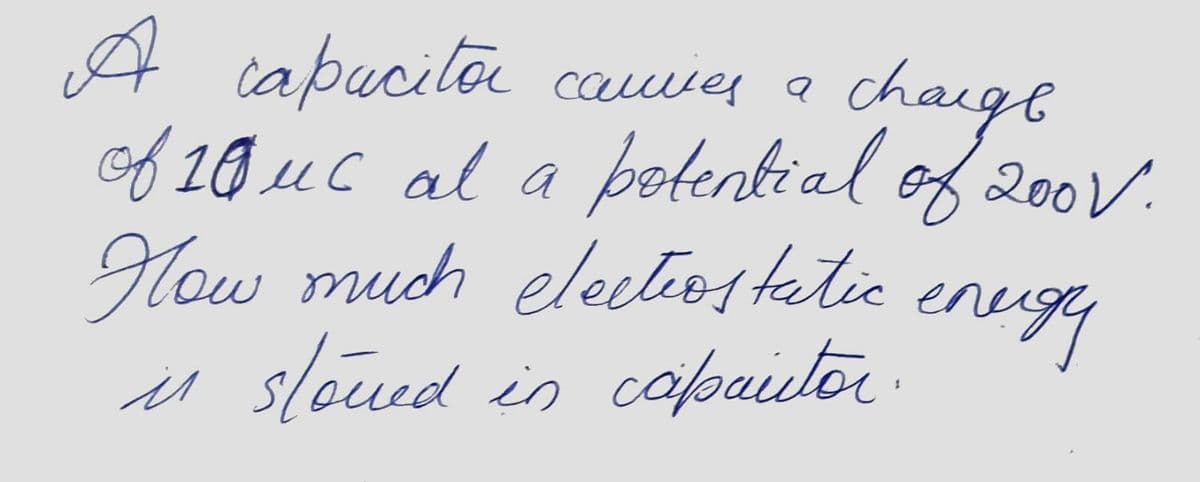 A capacitor carries a charge
of 10 μC at a potential of 200V.
How much electrostatic energy
is stored in capacitor.